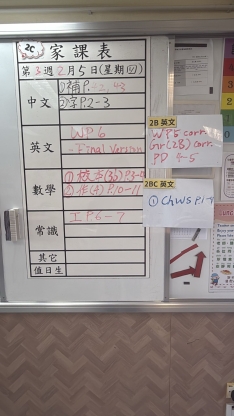 2C 家課表
第3週2月5日(星期四)
中文
①補P. 43
②字P.2-3
英文
WP 6
-Final Version
數學
① 校本(3b)P.3-4
② 作(4) P.10-11
常識
工P.6-7
其它
值日生
2B 英文
WP5 corr.
Gr(2B) corr.
PD 4-5
2BC 英文
① ChWS P.1-7